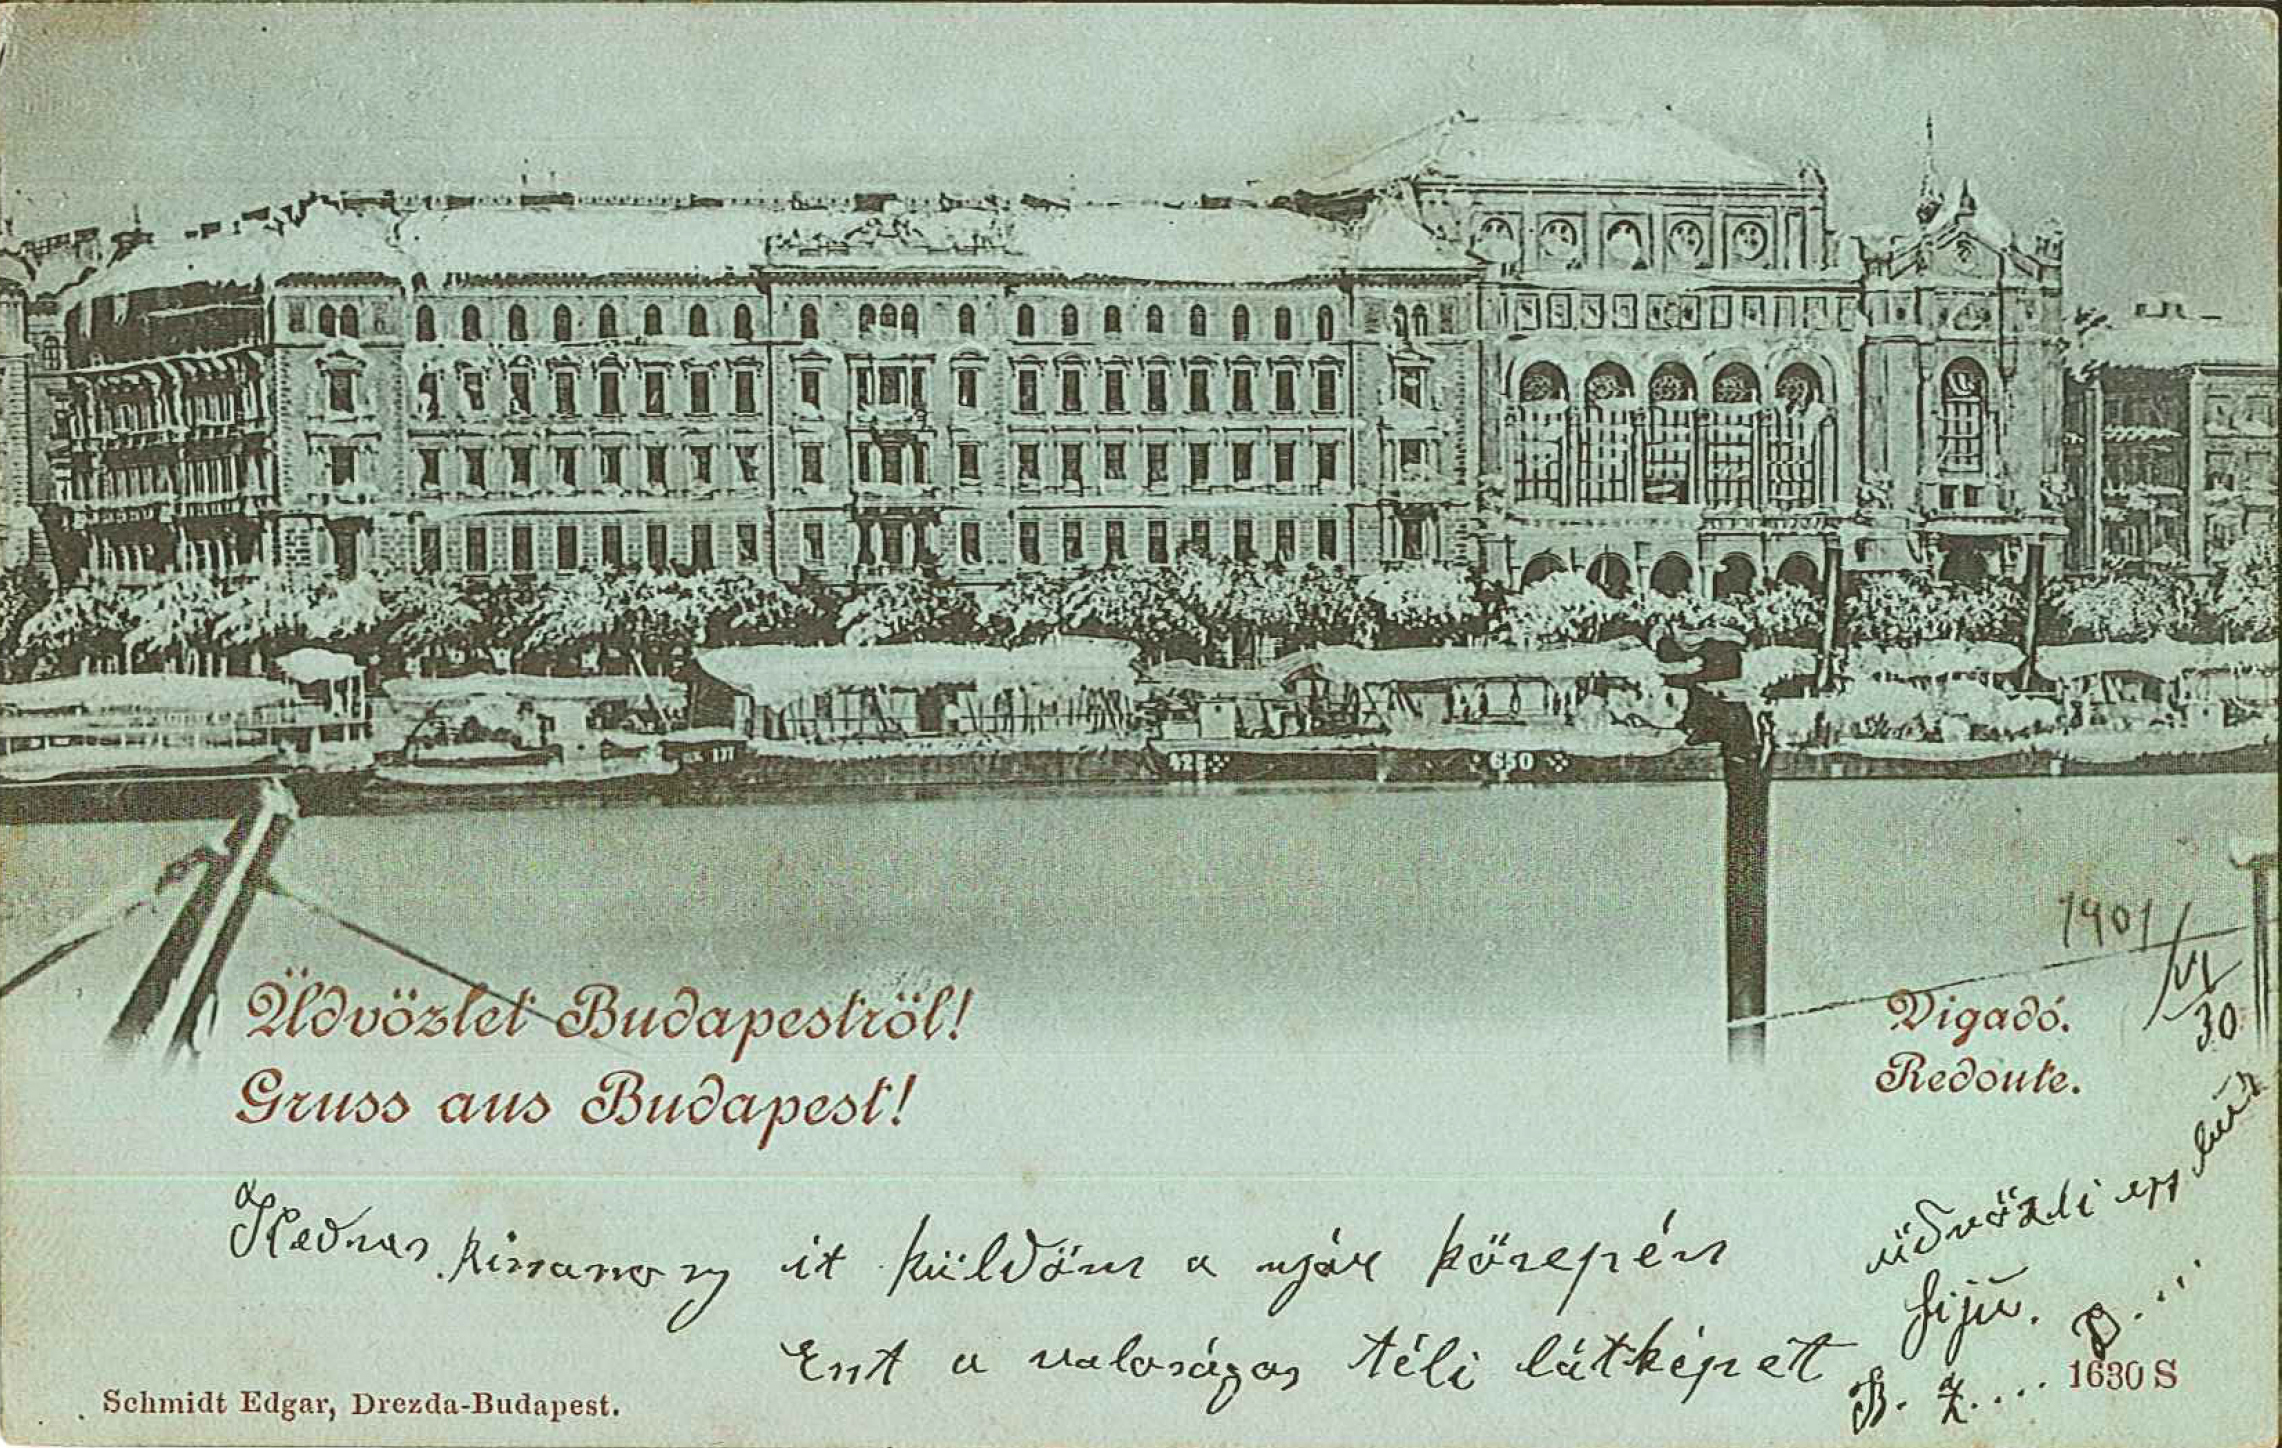 177
425
650
1901/VI
30
Üdvözlet Budapestről!
Gruss aus Budapest!
Vigadó.
Redoute.
Kedves kisasszony itt küldöm a nyár közepén
Ezt a valóságos téli látképet
üdvözli egy
fijú.
B. Z....
Schmidt Edgar, Drezda-Budapest.
1630 S